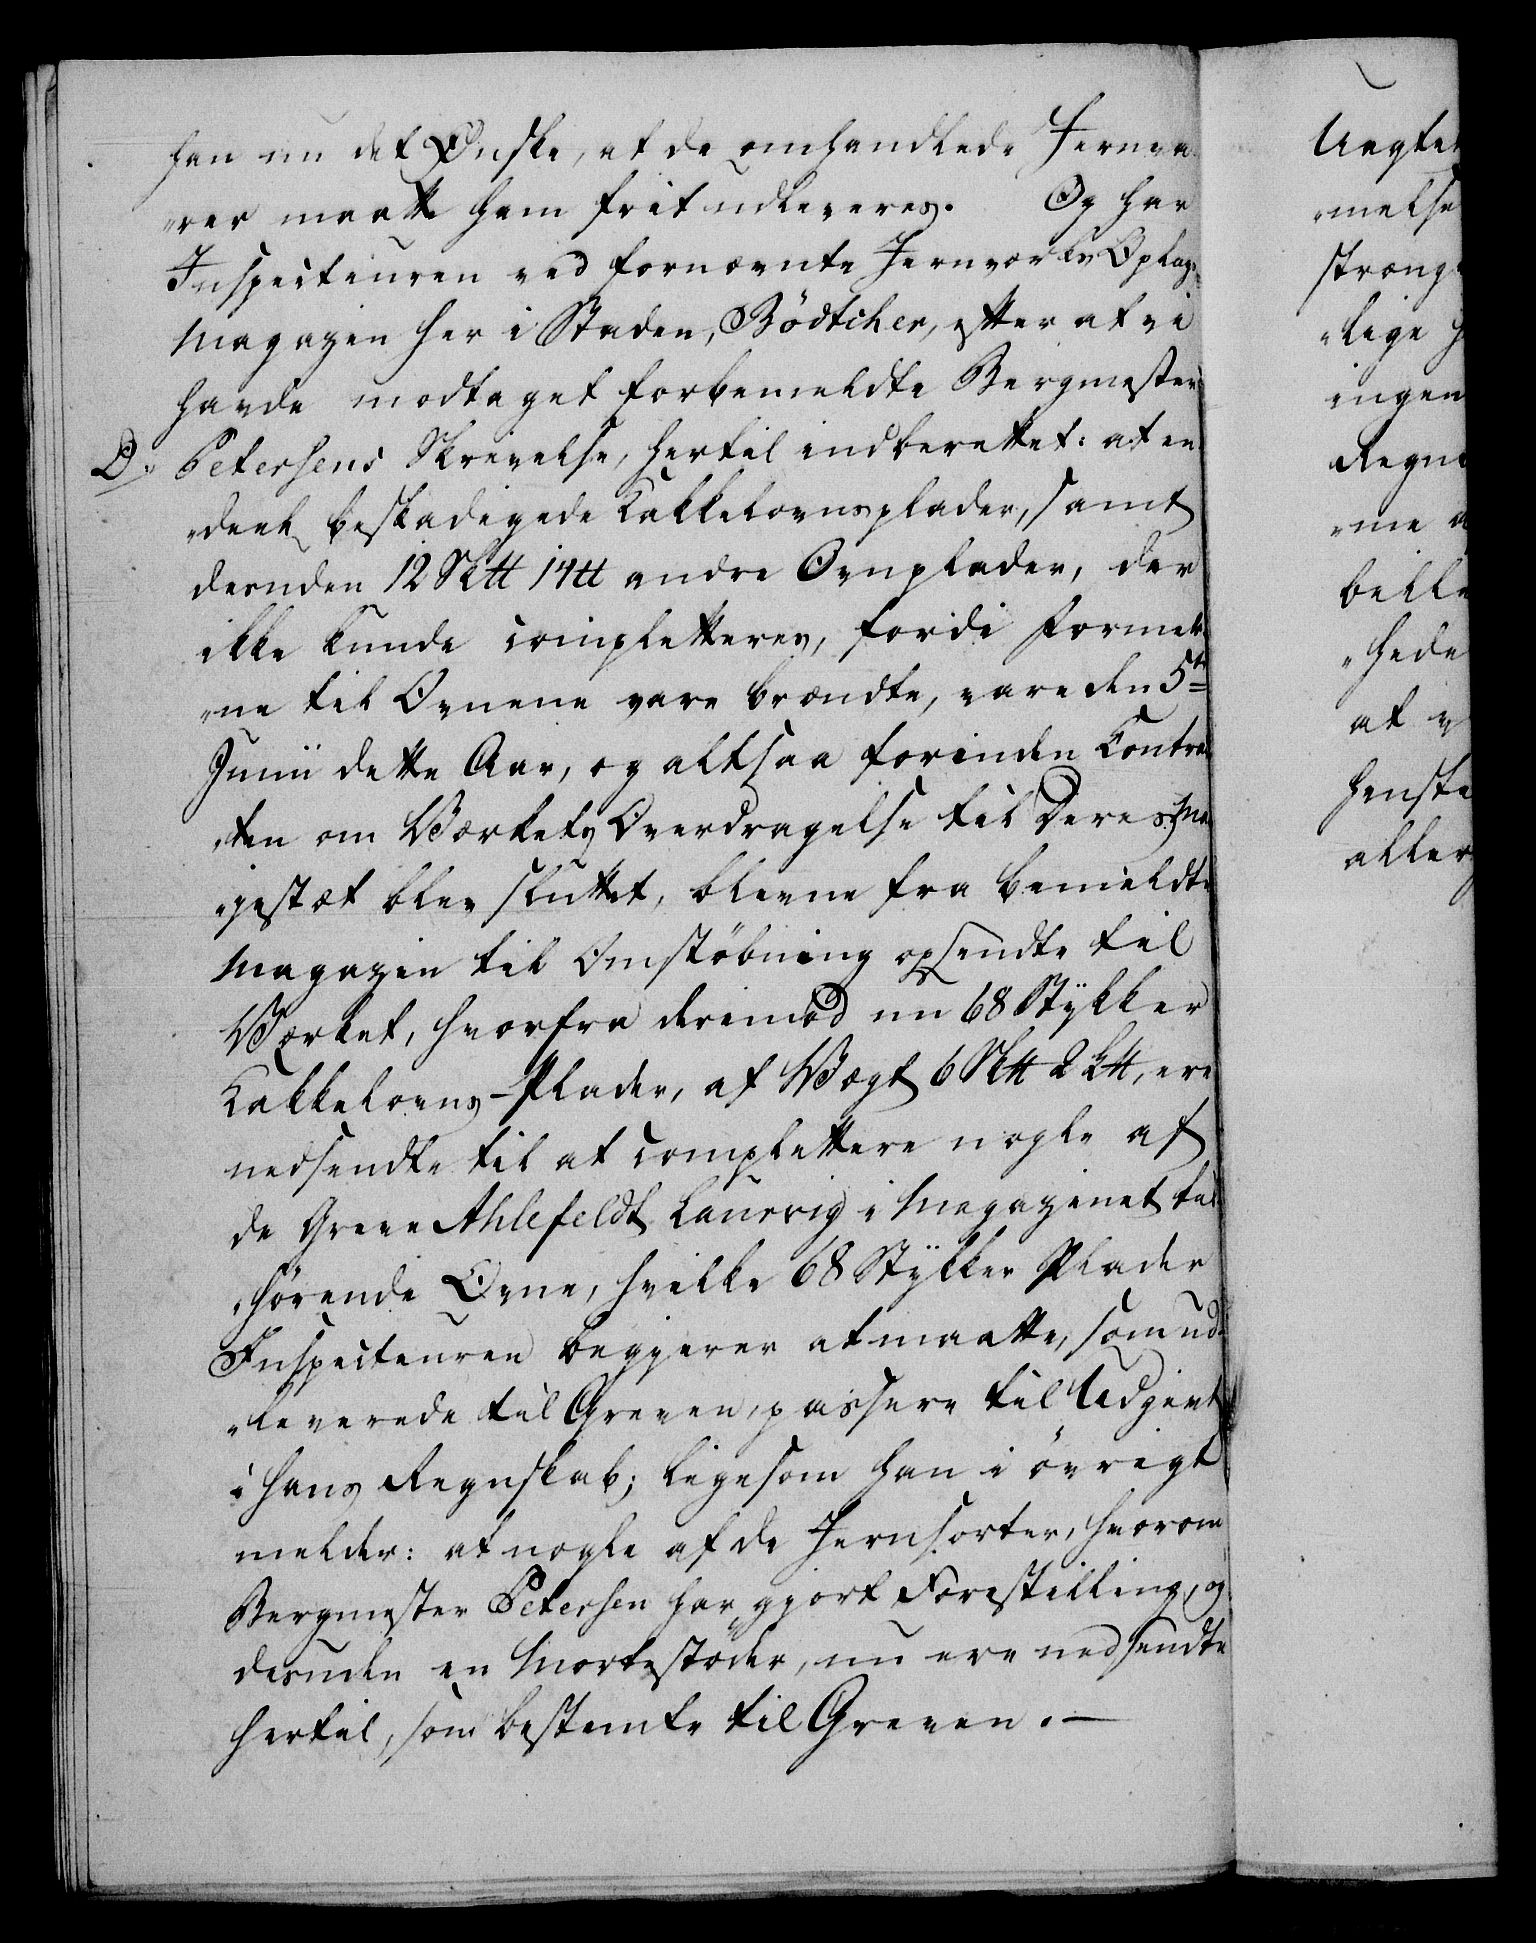 han nu det Ønske, at de omhandlede Jernva
„rer maatte ham frit udleveres. Og har
Inspecteuren ved fornævnte Jernværks Oplags
Magazin her i Staden, Bödtcher, efter at vi
havde modtaget forbemeldte Bergmester
D. Petersens Skrivelse, hertil indberettet: at en
„deel beskadigede Kakkelovnsplader, samt
desuden 12 S℔ 14 ℔ andre Ovnplader, der
ikke kunde completteres, fordi Former
„ne til Ovnene vare brændte, vare den 5te
Junii dette Aar, og altsaa forinden Contrac
„ten om Værkets Overdragelse til Deres Ma
„jestæt blev sluttet, blevne fra bemeldte
Magazin til Omstöbning opsendte til
Værket, hvorfra derimod nu 68 Stÿkker
Kakkelovns-Plader, af Vægt 6 S℔ 2 L℔, ere
nedsendte til at complettere nogle af
de Greve Ahlefeldt Laurvig i Magazinet til
„hörende Ovne, hvilke 68 Stÿkker Plader
Inspecteuren begjerer at maatte, som ud
„leverede til Greven, passere til Udgivt
i hans Regnskab; ligesom han i övrigt
melder: at nogle af de Jernsorter, hvorom
Bergmester Petersen har gjort Forestilling, og
desuden en Morterstöder, nu ere nedsendte
hertil, som bestemte til Greven. —
Uagtet
„melse
stræng
„lige
ingen
Regn
„me
belle
„hede
at
henste
aller